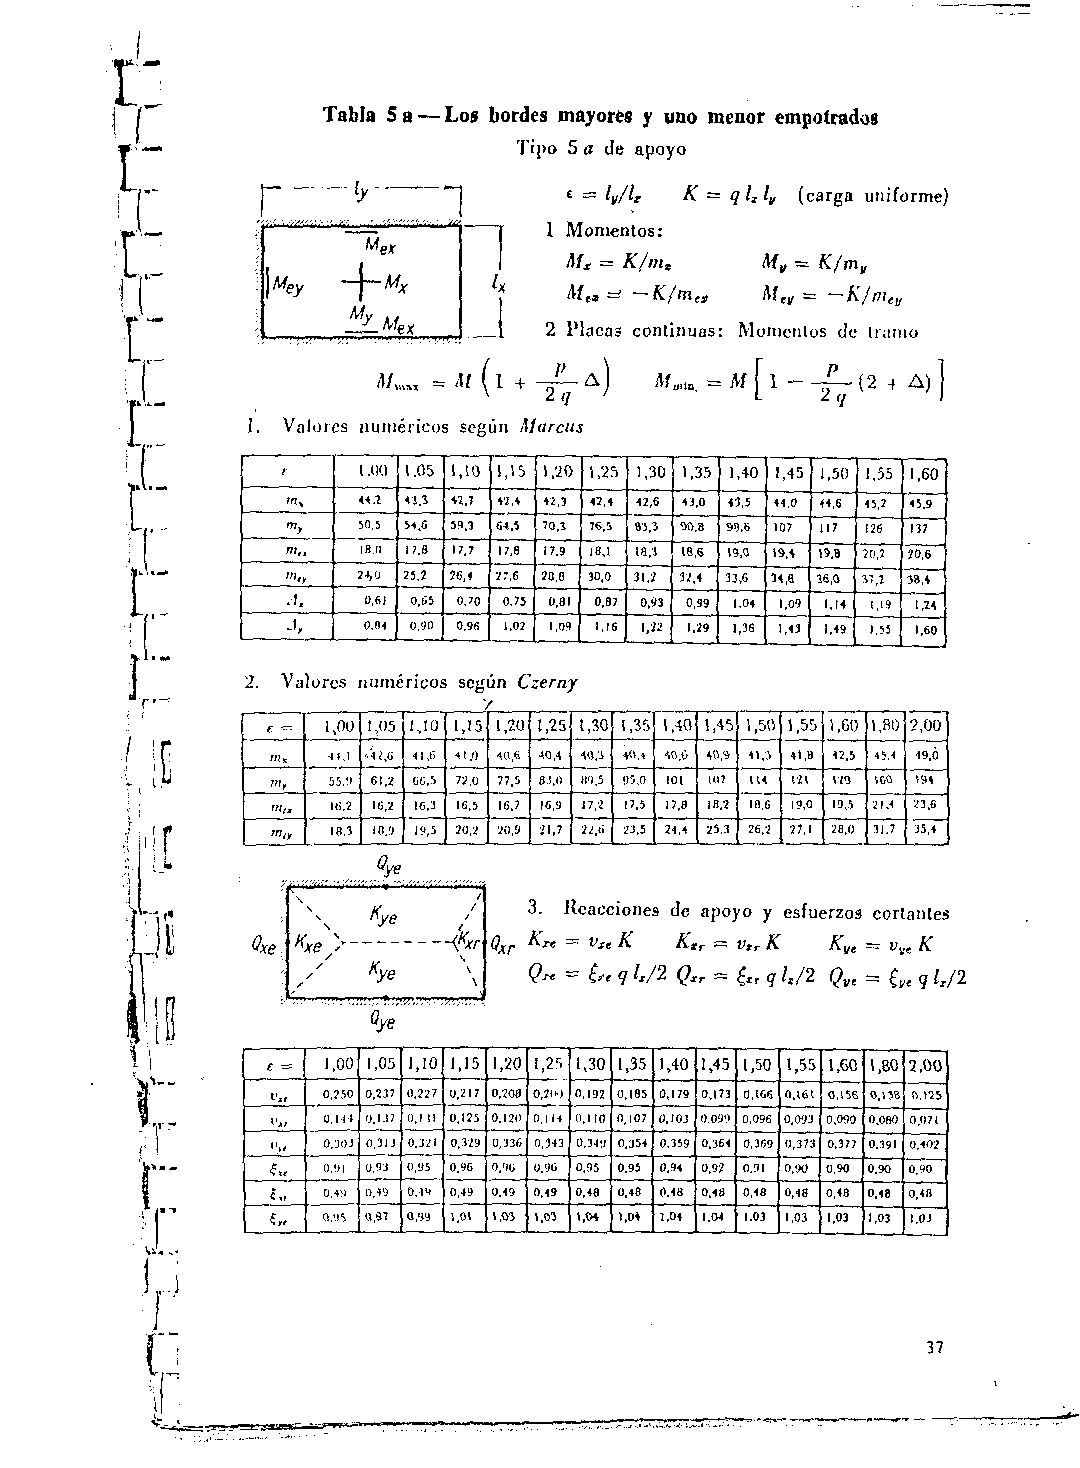 Tabla 5 a — Los bordes mayores y uno menor empotrados
Tipo 5 a de apoyo
ly
lx
Mex
Mey
Mx
My
Mex
ε = ly/lx K = q lx ly (carga uniforme)
1 Momentos:
Mx = K/mx My = K/my
Mex = −K/mex Mey = −K/mey
2 Placas continuas: Momentos de tramo
Mmax = M (1 + p/2q Δ) Mmin. = M [1 − p/2q (2 + Δ)]
1. Valores numéricos según Marcus
ε 1,00 1,05 1,10 1,15 1,20 1,25 1,30 1,35 1,40 1,45 1,50 1,55 1,60
mx 44,2 43,3 42,7 42,4 42,3 42,4 42,6 43,0 43,5 44,0 44,6 45,2 45,9
my 50,5 54,6 59,3 64,5 70,3 76,5 85,3 90,8 99,6 107 117 126 137
mex 18,0 17,8 17,7 17,8 17,9 18,1 18,3 18,6 19,0 19,4 19,8 20,2 20,6
mey 24,0 25,2 26,4 27,6 28,8 30,0 31,2 32,4 33,6 34,8 36,0 37,2 38,4
Δx 0,61 0,65 0,70 0,75 0,81 0,87 0,93 0,99 1,04 1,09 1,14 1,19 1,24
Δy 0,84 0,90 0,96 1,02 1,09 1,16 1,22 1,29 1,36 1,43 1,49 1,55 1,60
2. Valores numéricos según Czerny
ε = 1,00 1,05 1,10 1,15 1,20 1,25 1,30 1,35 1,40 1,45 1,50 1,55 1,60 1,80 2,00
mx 44,1 42,6 41,6 41,0 40,6 40,4 40,3 40,4 40,6 40,9 41,3 41,8 42,5 45,4 49,0
my 55,9 61,2 66,5 72,0 77,5 83,0 89,5 95,0 101 107 114 121 129 160 194
mex 16,2 16,2 16,3 16,5 16,7 16,9 17,2 17,5 17,8 18,2 18,6 19,0 19,5 21,4 23,6
mey 18,3 18,9 19,5 20,2 20,9 21,7 22,6 23,5 24,4 25,3 26,2 27,1 28,0 31,7 35,4
Qye
Kye
Qxe Kxe Kxr Qxr
Kye
Qye
3. Reacciones de apoyo y esfuerzos cortantes
Kxe = νxe K Kxr = νxr K Kye = νye K
Qxe = ξxe q lx/2 Qxr = ξxr q lx/2 Qye = ξye q lx/2
ε = 1,00 1,05 1,10 1,15 1,20 1,25 1,30 1,35 1,40 1,45 1,50 1,55 1,60 1,80 2,00
νxe 0,250 0,237 0,227 0,217 0,208 0,200 0,192 0,185 0,179 0,173 0,166 0,161 0,156 0,138 0,125
νxr 0,144 0,137 0,131 0,125 0,120 0,114 0,110 0,107 0,103 0,099 0,096 0,093 0,090 0,080 0,071
νye 0,303 0,313 0,321 0,329 0,336 0,343 0,349 0,354 0,359 0,364 0,369 0,373 0,377 0,391 0,402
ξxe 0,91 0,93 0,95 0,96 0,96 0,96 0,95 0,95 0,94 0,92 0,91 0,90 0,90 0,90 0,90
ξxr 0,49 0,49 0,49 0,49 0,49 0,49 0,48 0,48 0,48 0,48 0,48 0,48 0,48 0,48 0,48
ξye 0,95 0,97 0,99 1,01 1,03 1,03 1,04 1,04 1,04 1,04 1,03 1,03 1,03 1,03 1,03
37